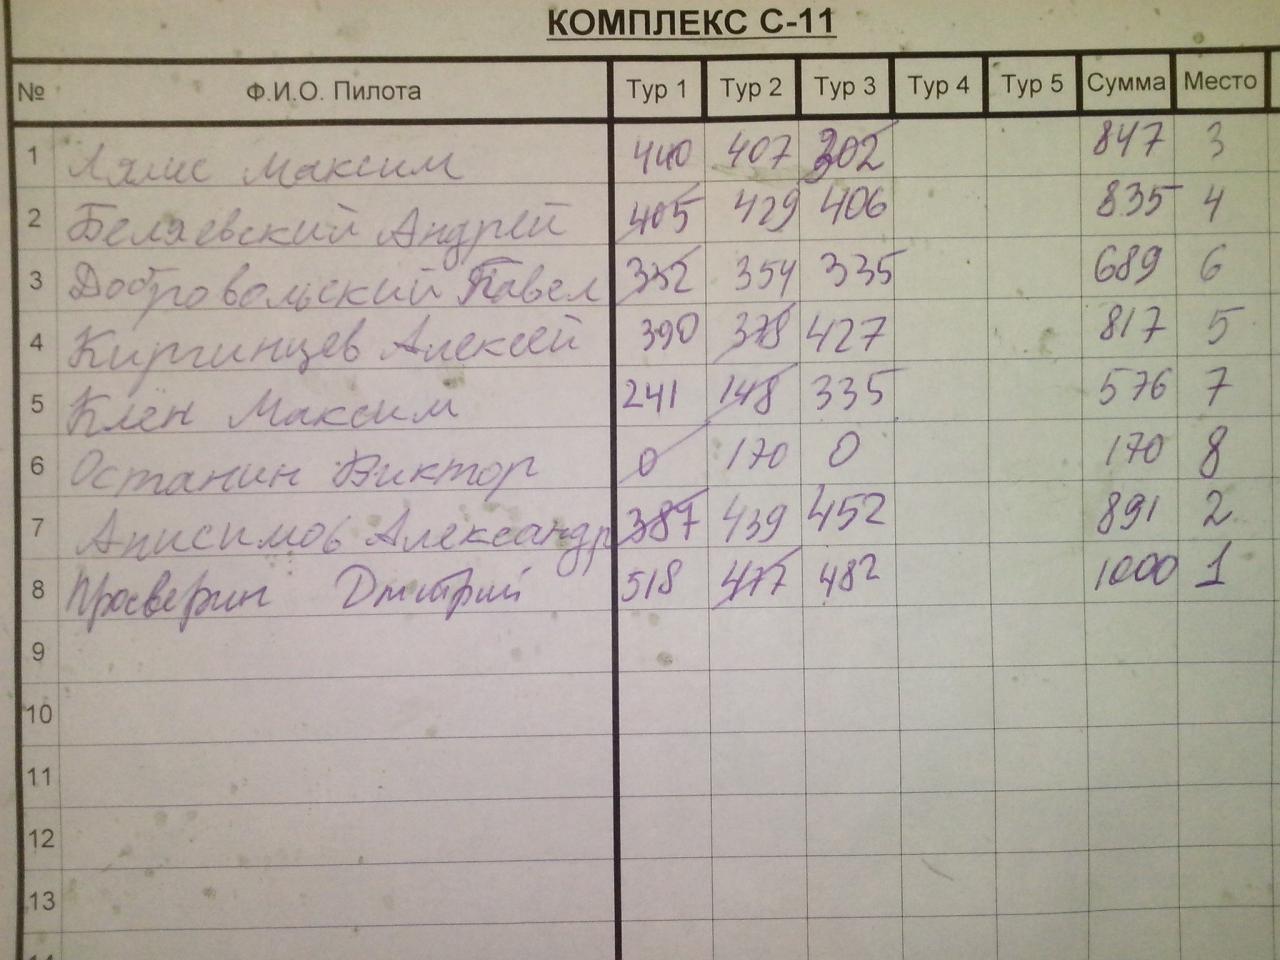 КОМПЛЕКС С-11
№ Ф.И.О. Пилота Тур 1 Тур 2 Тур 3 Тур 4 Тур 5 Сумма Место
1 Максим 440 407 302 847 3
2 Беляевский Андрей 405 429 406 835 4
3 Добровольский Павел 332 354 335 689 6
4 Киргинцев Алексей 390 378 427 817 5
5 Клён Максим 241 148 335 576 7
6 Останин Виктор 0 170 0 170 8
7 Анисимов Александр 387 439 452 891 2
8 Просверин Дмитрий 518 477 482 1000 1
9
10
11
12
13